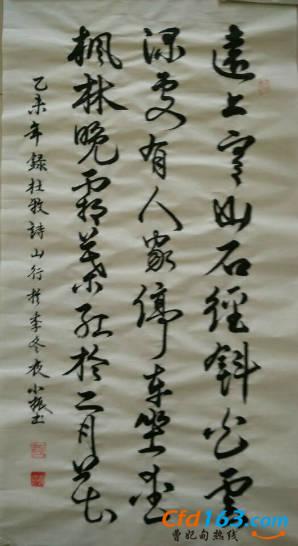 遠上寒山石徑斜白雲
深處有人家停車坐愛
楓林晚霜葉紅於二月花
乙未年錄杜牧詩山行於季冬夜小振书
Cfd163.com
曹妃甸热线